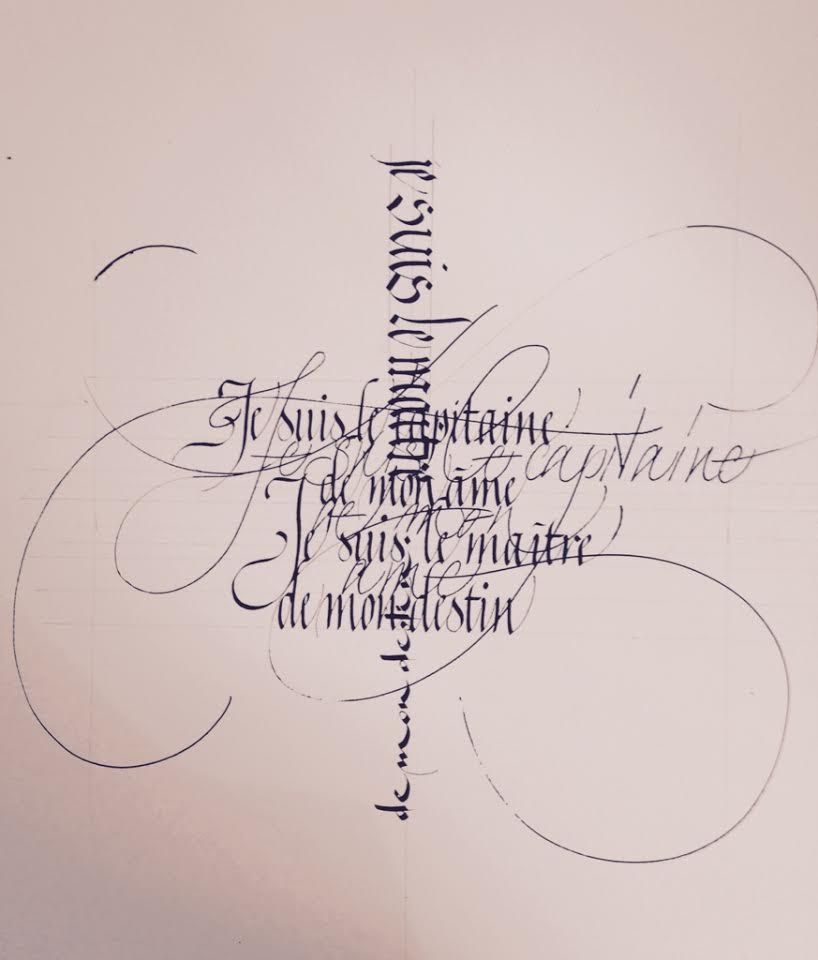 Je suis le maître
Je suis le capitaine
de mon âme
Je suis le maître
de mon destin
Je suis le capitaine
de mon
âme
de mon destin